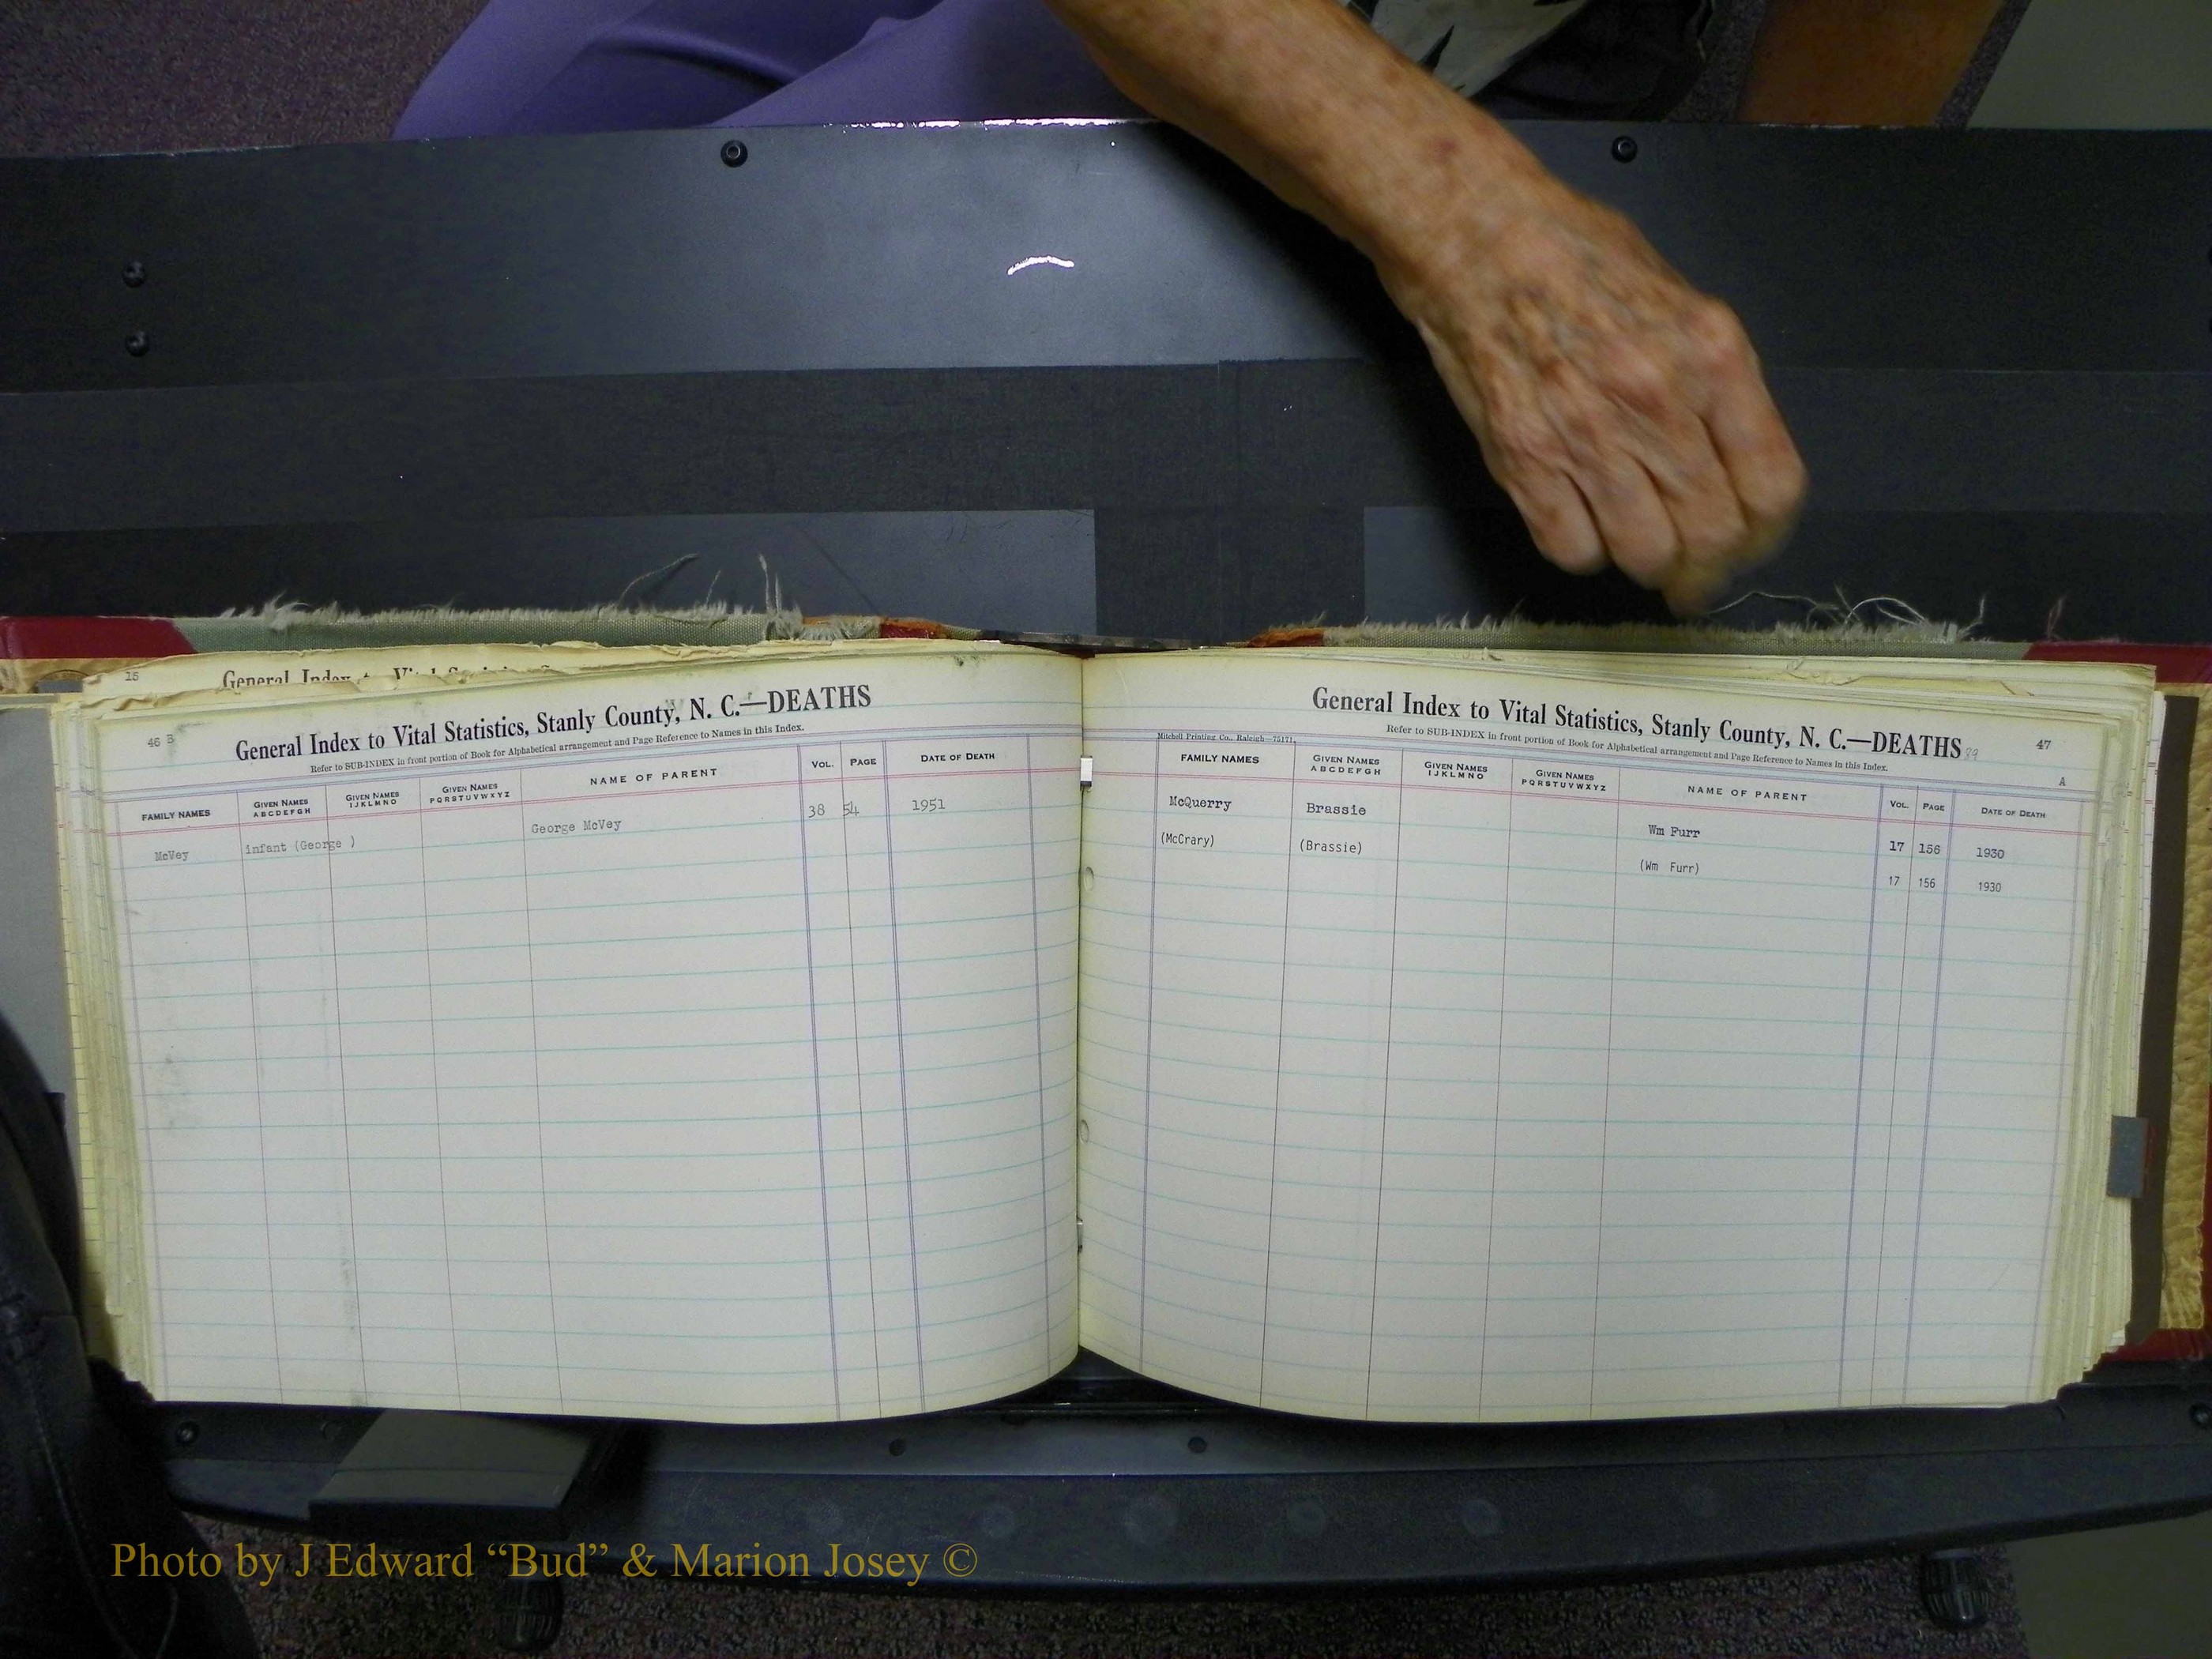 15
General Index to Vital Statistics
46 B
General Index to Vital Statistics, Stanly County, N. C.—DEATHS
Refer to SUB-INDEX in front portion of Book for Alphabetical arrangement and Page Reference to Names in this Index.
FAMILY NAMES GIVEN NAMES ABCDEFGH GIVEN NAMES IJKLMNO GIVEN NAMES PQRSTUVWXYZ NAME OF PARENT VOL. PAGE DATE OF DEATH
McVey infant (George ) George McVey 38 54 1951
47
A
General Index to Vital Statistics, Stanly County, N. C.—DEATHS
Mitchell Printing Co., Raleigh—75171.
Refer to SUB-INDEX in front portion of Book for Alphabetical arrangement and Page Reference to Names in this Index.
FAMILY NAMES GIVEN NAMES ABCDEFGH GIVEN NAMES IJKLMNO GIVEN NAMES PQRSTUVWXYZ NAME OF PARENT VOL. PAGE DATE OF DEATH
McQuerry Brassie Wm Furr 17 156 1930
(McCrary) (Brassie) (Wm Furr) 17 156 1930
Photo by J Edward “Bud” & Marion Josey ©